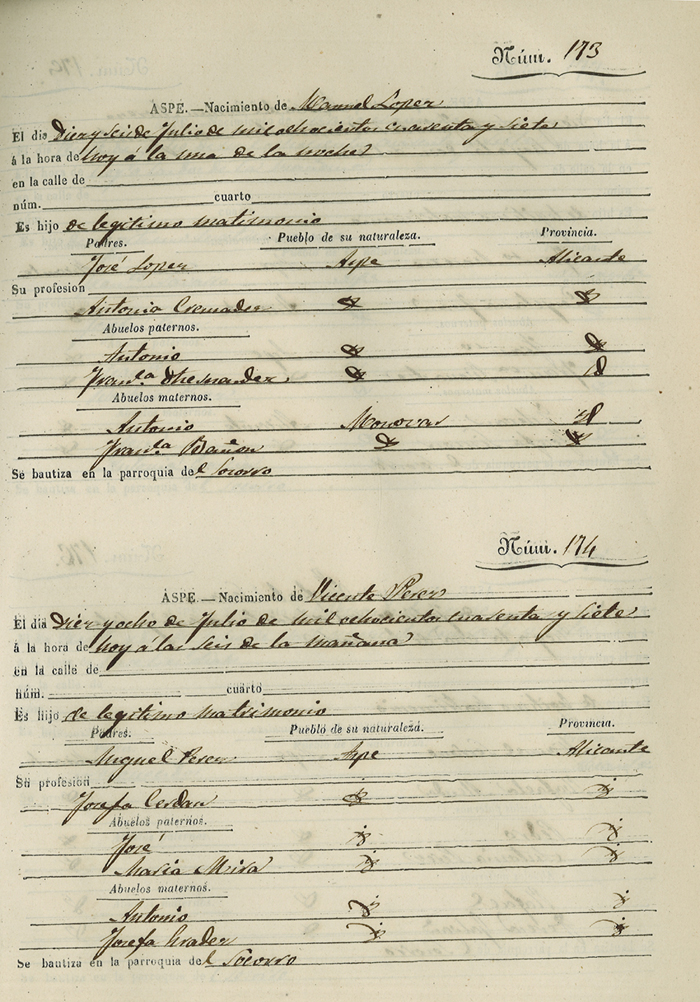 Núm. 173
ASPE.—Nacimiento de Manuel Lopez
El dia Diez y seis de Julio de mil ochocientos cuarenta y siete
á la hora de hoy á la una de la noche
en la calle de
núm. cuarto
Es hijo de legitimo matrimonio
Padres. Pueblo de su naturaleza. Provincia.
José Lopez Aspe Alicante
Su profesion
Antonia Cremades
Abuelos paternos.
Antonio
Franca Hernandez
Abuelos maternos.
Antonio Monovar
Franca Bañon
Se bautiza en la parroquia del Socorro
Núm. 174
ASPE.—Nacimiento de Vicente Perez
El dia Diez y ocho de Julio de mil ochocientos cuarenta y siete
á la hora de hoy á las seis de la mañana
en la calle de
núm. cuarto
Es hijo de legitimo matrimonio
Padres. Pueblo de su naturaleza. Provincia.
Miguel Perez Aspe Alicante
Su profesion
Josefa Cerdan
Abuelos paternos.
José
Maria Mira
Abuelos maternos.
Antonio
Josefa
Se bautiza en la parroquia del Socorro